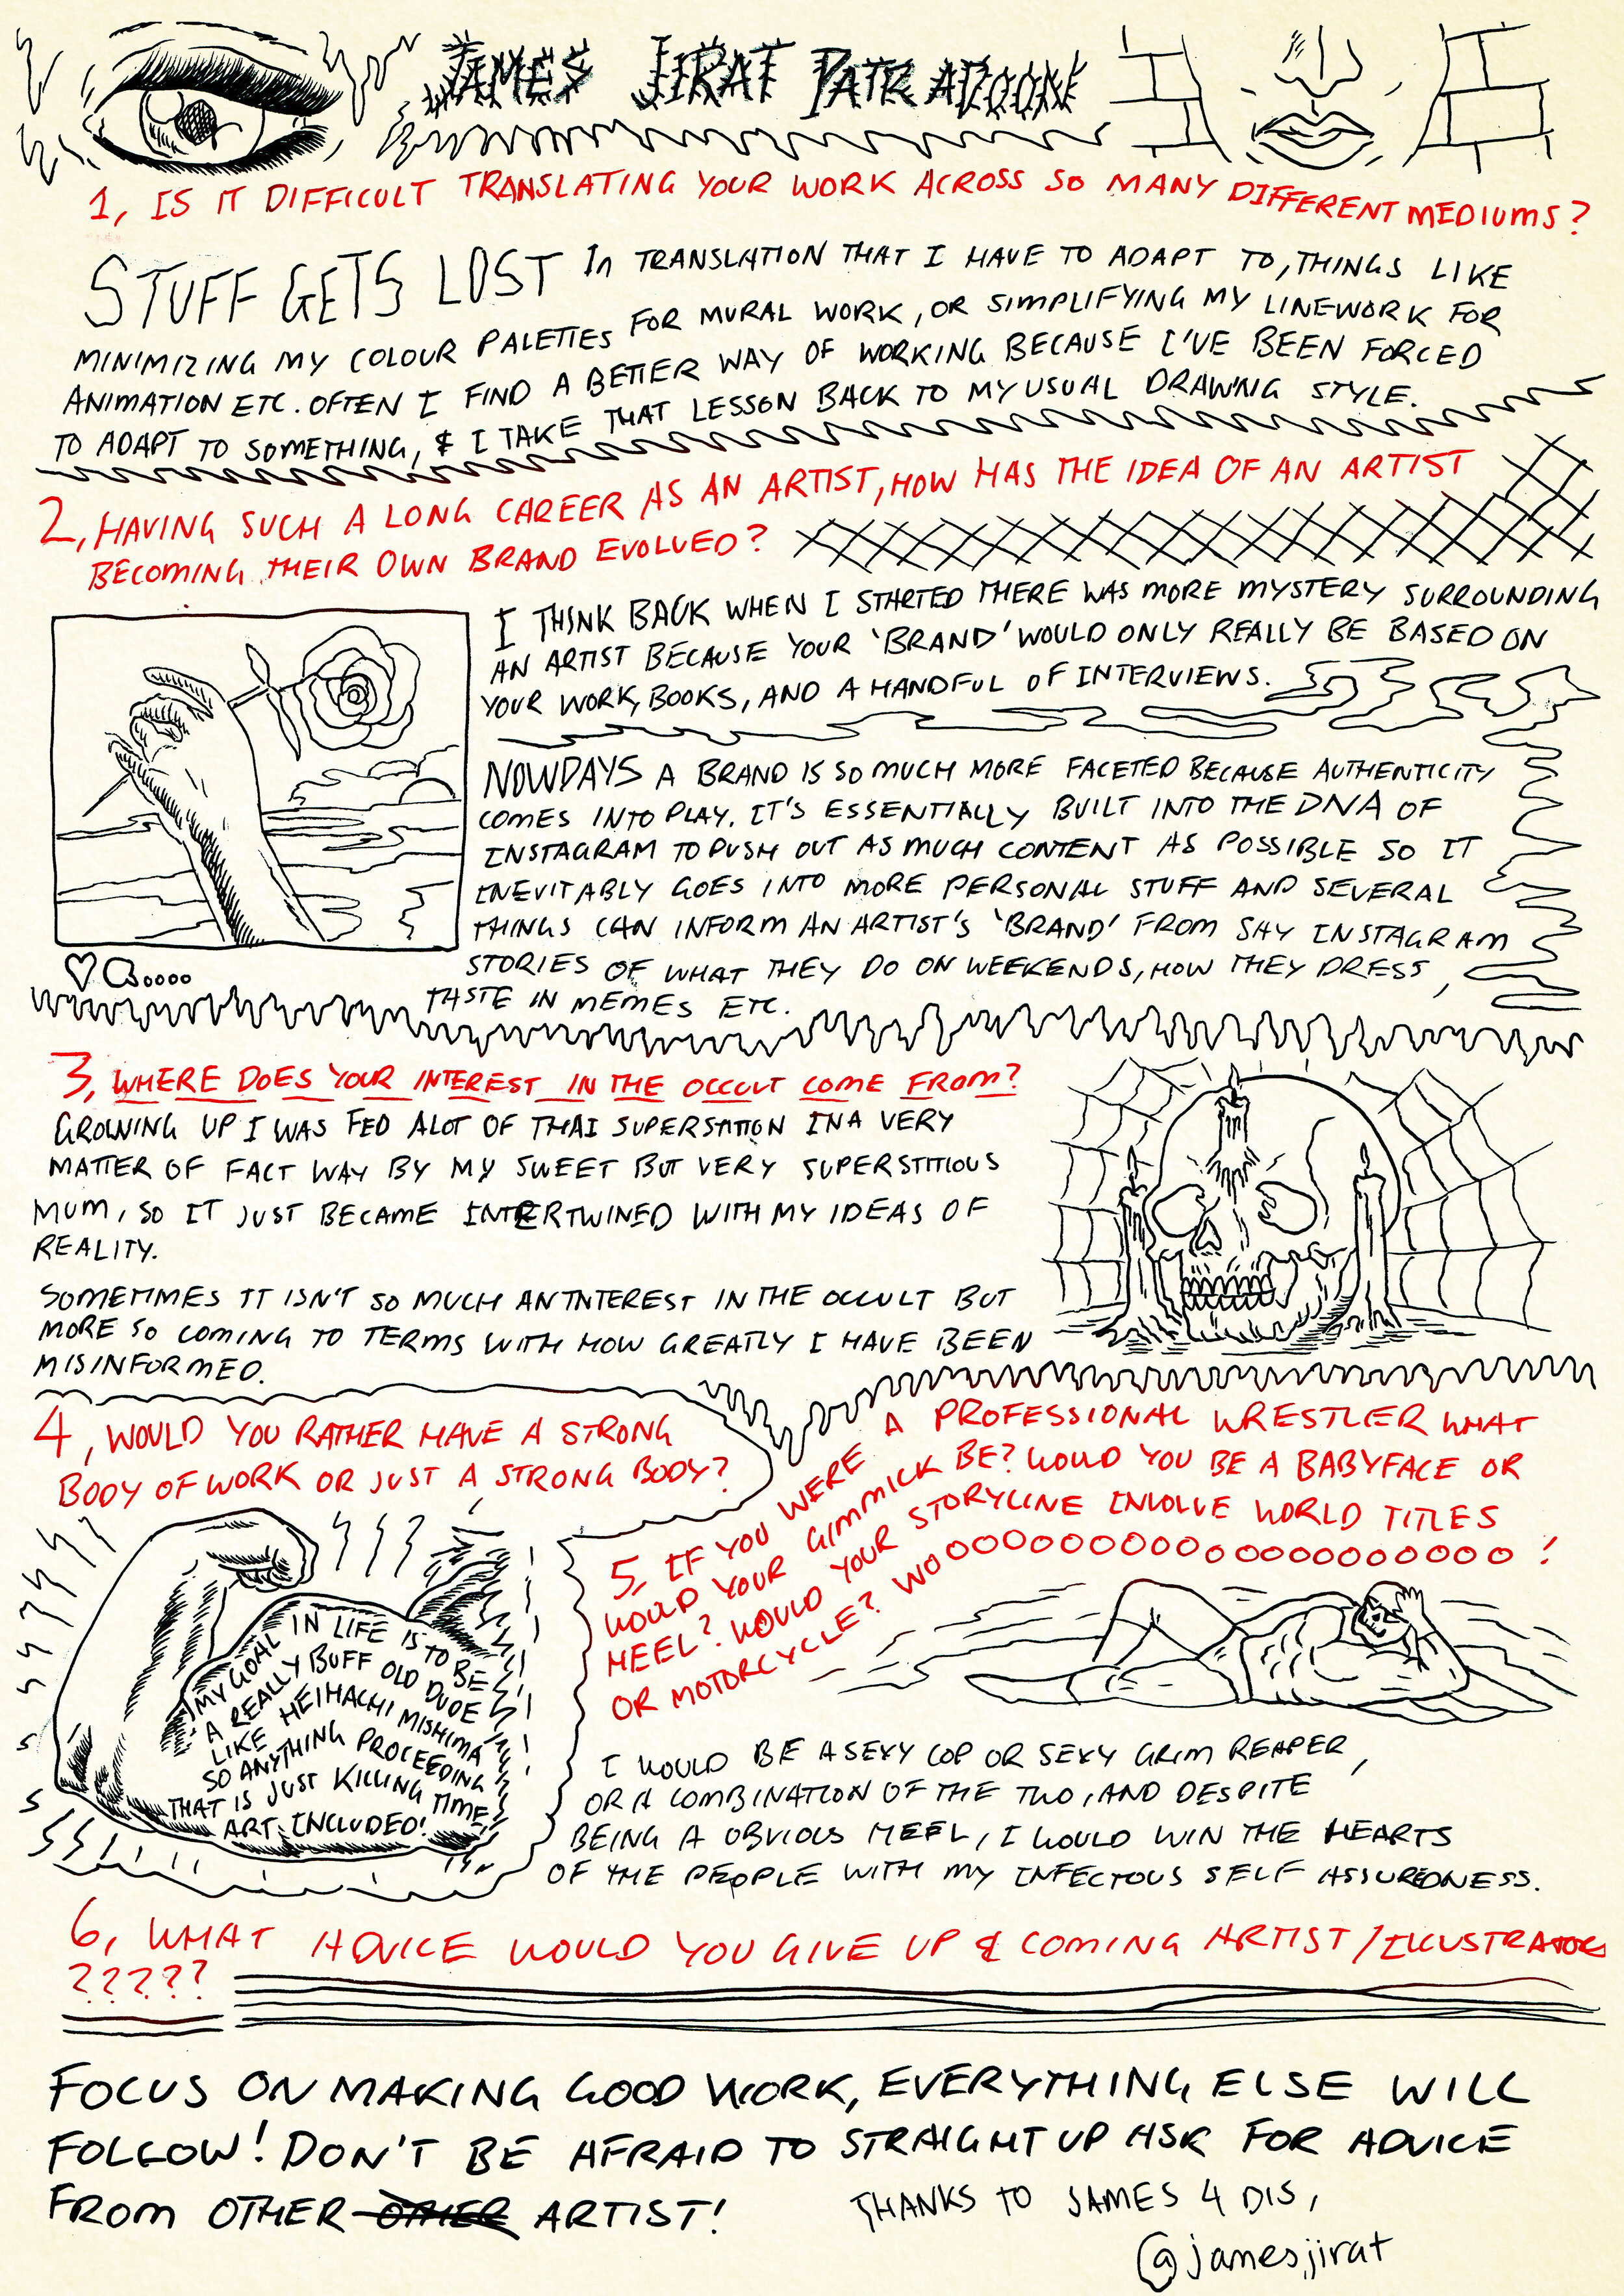 JAMES JIRAT PATRADOON
1, IS IT DIFFICULT TRANSLATING YOUR WORK ACROSS SO MANY DIFFERENT MEDIUMS?
STUFF GETS LOST IN TRANSLATION THAT I HAVE TO ADAPT TO, THINGS LIKE
MINIMIZING MY COLOUR PALETTES FOR MURAL WORK, OR SIMPLIFYING MY LINEWORK FOR
ANIMATION ETC. OFTEN I FIND A BETTER WAY OF WORKING BECAUSE I'VE BEEN FORCED
TO ADAPT TO SOMETHING, & I TAKE THAT LESSON BACK TO MY USUAL DRAWING STYLE.
2, HAVING SUCH A LONG CAREER AS AN ARTIST, HOW HAS THE IDEA OF AN ARTIST
BECOMING THEIR OWN BRAND EVOLVED?
I THINK BACK WHEN I STARTED THERE WAS MORE MYSTERY SURROUNDING
AN ARTIST BECAUSE YOUR 'BRAND' WOULD ONLY REALLY BE BASED ON
YOUR WORK, BOOKS, AND A HANDFUL OF INTERVIEWS.
NOWDAYS A BRAND IS SO MUCH MORE FACETED BECAUSE AUTHENTICITY
COMES INTO PLAY. IT'S ESSENTIALLY BUILT INTO THE DNA OF
INSTAGRAM TO PUSH OUT AS MUCH CONTENT AS POSSIBLE SO IT
INEVITABLY GOES INTO MORE PERSONAL STUFF AND SEVERAL
THINGS CAN INFORM AN ARTIST'S 'BRAND' FROM SAY INSTAGRAM
STORIES OF WHAT THEY DO ON WEEKENDS, HOW THEY DRESS,
TASTE IN MEMES ETC.
3, WHERE DOES YOUR INTEREST IN THE OCCULT COME FROM?
GROWING UP I WAS FED ALOT OF THAI SUPERSTITION IN A VERY
MATTER OF FACT WAY BY MY SWEET BUT VERY SUPERSTITIOUS
MUM, SO IT JUST BECAME INTERTWINED WITH MY IDEAS OF
REALITY.
SOMETIMES IT ISN'T SO MUCH AN INTEREST IN THE OCCULT BUT
MORE SO COMING TO TERMS WITH HOW GREATLY I HAVE BEEN
MISINFORMED.
4, WOULD YOU RATHER HAVE A STRONG
BODY OF WORK OR JUST A STRONG BODY?
MY GOAL IN LIFE IS TO BE
A REALLY BUFF OLD DUDE
LIKE HEIHACHI MISHIMA
SO ANYTHING PROCEEDING
THAT IS JUST KILLING TIME
ART INCLUDED!
5, IF YOU WERE A PROFESSIONAL WRESTLER WHAT
WOULD YOUR GIMMICK BE? WOULD YOU BE A BABYFACE OR
HEEL? WOULD YOUR STORYLINE INVOLVE WORLD TITLES
OR MOTORCYCLE? WOOOOOOOOOOOOOOOOOOOOO!
I WOULD BE A SEXY COP OR SEXY GRIM REAPER,
OR A COMBINATION OF THE TWO, AND DESPITE
BEING A OBVIOUS HEEL, I WOULD WIN THE HEARTS
OF THE PEOPLE WITH MY INFECTOUS SELF ASSUREDNESS.
6, WHAT ADVICE WOULD YOU GIVE UP & COMING ARTIST/ILLUSTRATOR
?????
FOCUS ON MAKING GOOD WORK, EVERYTHING ELSE WILL
FOLLOW! DON'T BE AFRAID TO STRAIGHT UP ASK FOR ADVICE
FROM OTHER OTHER ARTIST!
THANKS TO JAMES 4 DIS,
@jamesjirat